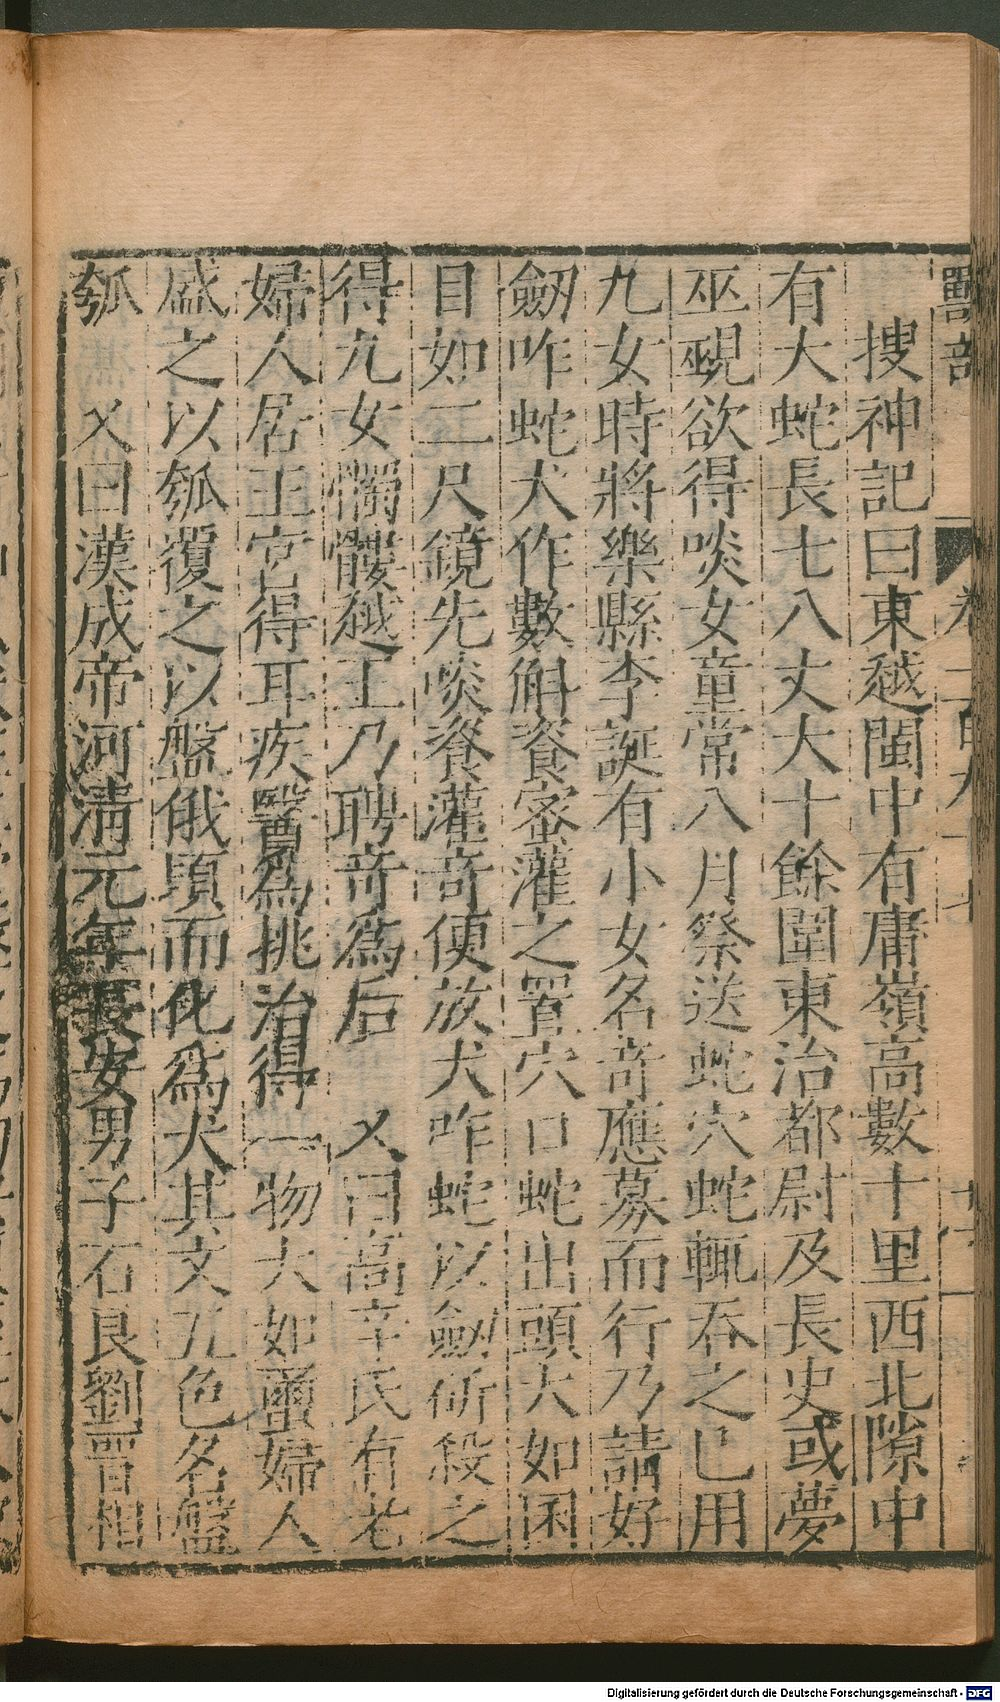 獸部
搜神記曰東越閩中有庸嶺高數十里西北隙中
有大蛇長七八丈大十餘圍東治都尉及長史或夢
巫覡欲得啖女童常八月祭送蛇穴蛇輒吞之已用
九女時將樂縣李誕有小女名竒應募而行乃請好
劒咋蛇犬作數斛餈蜜灌之置穴口蛇出頭大如囷
目如二尺鏡先啖餈灌竒便放犬咋蛇以劒斫殺之
得九女髑髏越王乃聘竒爲后　又曰高辛氏有老
婦人居王宮得耳疾醫爲挑治得一物大如蠒婦人
盛之以瓠覆之以盤俄頃而化爲犬其文五色名盤
瓠　又曰漢成帝河清元年長安男子石良劉晋相
Digitalisierung gefördert durch die Deutsche Forschungsgemeinschaft - DFG